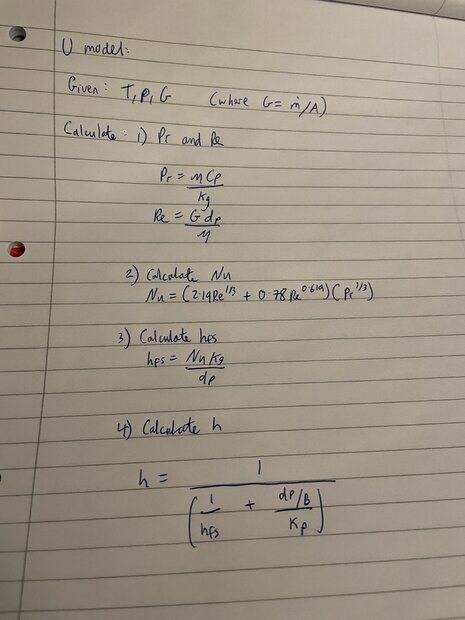 U model:
Given: T, P, G (where G = ṁ/A)
Calculate: 1) Pr and Re
Pr = μ Cp / kg
Re = G dp / μ
2) Calculate Nu
Nu = (2.19Re^1/3 + 0.78 Re^0.619)(Pr^1/3)
3) Calculate hfs
hfs = Nu kg / dp
4) Calculate h
h = 1 / (1/hfs + (dp/B)/kp)